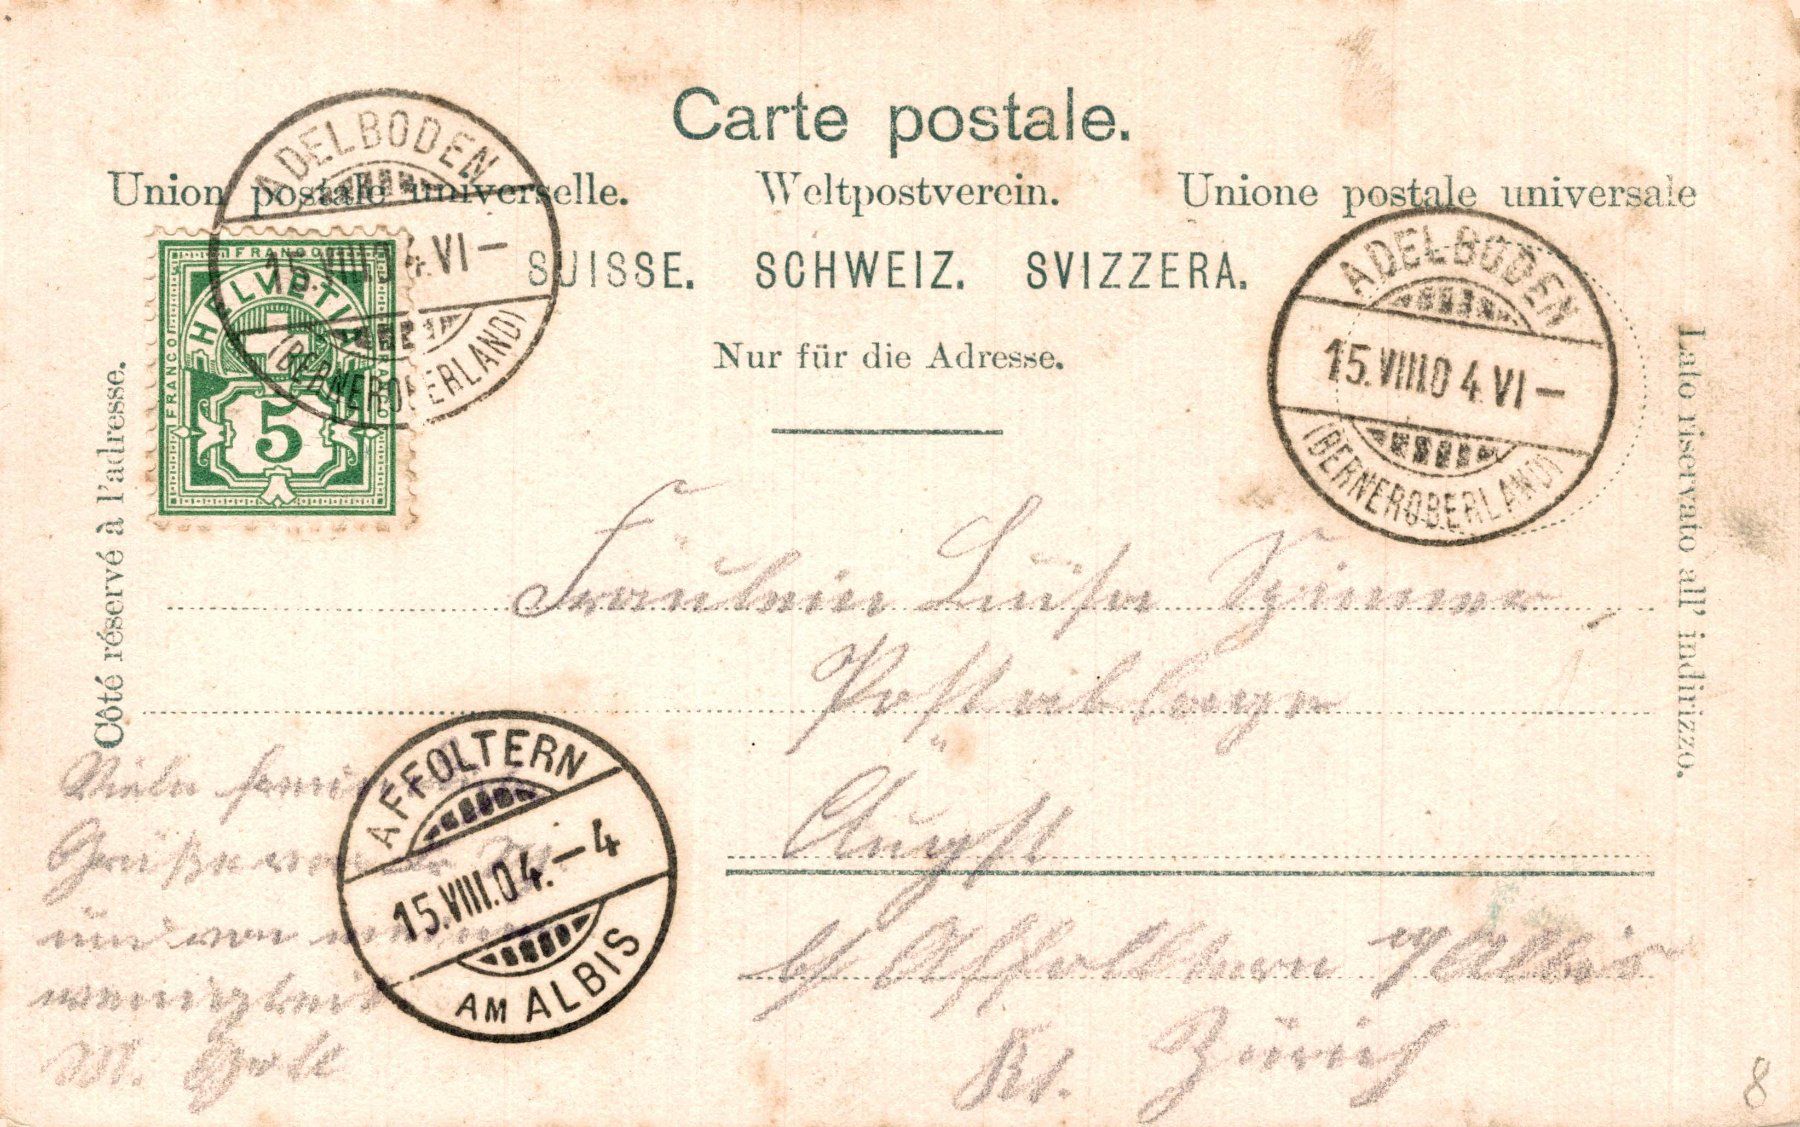 Carte postale.
Union postale universelle. Weltpostverein. Unione postale universale
SUISSE. SCHWEIZ. SVIZZERA.
Nur für die Adresse.
Côté réservé à l'adresse.
Lato riservato all' indirizzo.
ADELBODEN
15.VIII.04.VI–
(BERNEROBERLAND)
FRANCO
FRANCO
FRANCO
HELVETIA
5
ADELBODEN
15.VIII.04.VI–
(BERNEROBERLAND)
Fräulein Luise
Postablage
Augst
b/ Affoltern a/Albis
Kt. Zürich
AFFOLTERN
15.VIII.04.–4
AM ALBIS
Viele
Grüße von
und von
M.
8